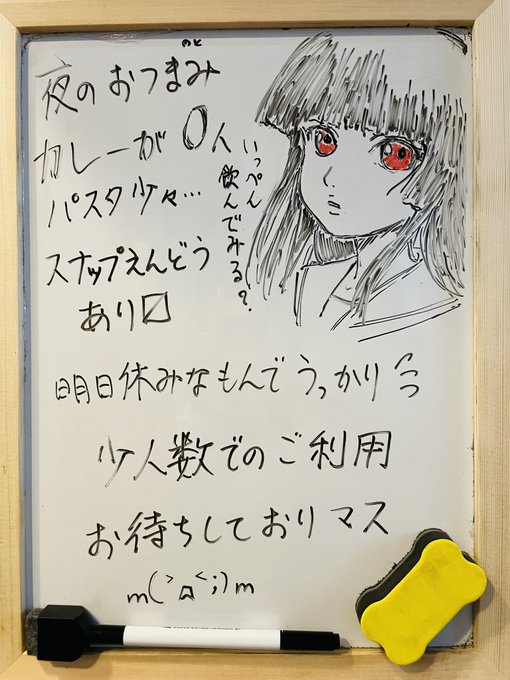 夜のおつまみ
のと
カレーが0人
パスタ少々…
スナップえんどう
あり〼
いっぺん
飲んでみる?
明日休みなもんでうっかり
少人数でのご利用
お待ちしておりマス
m(>ロ<;)m